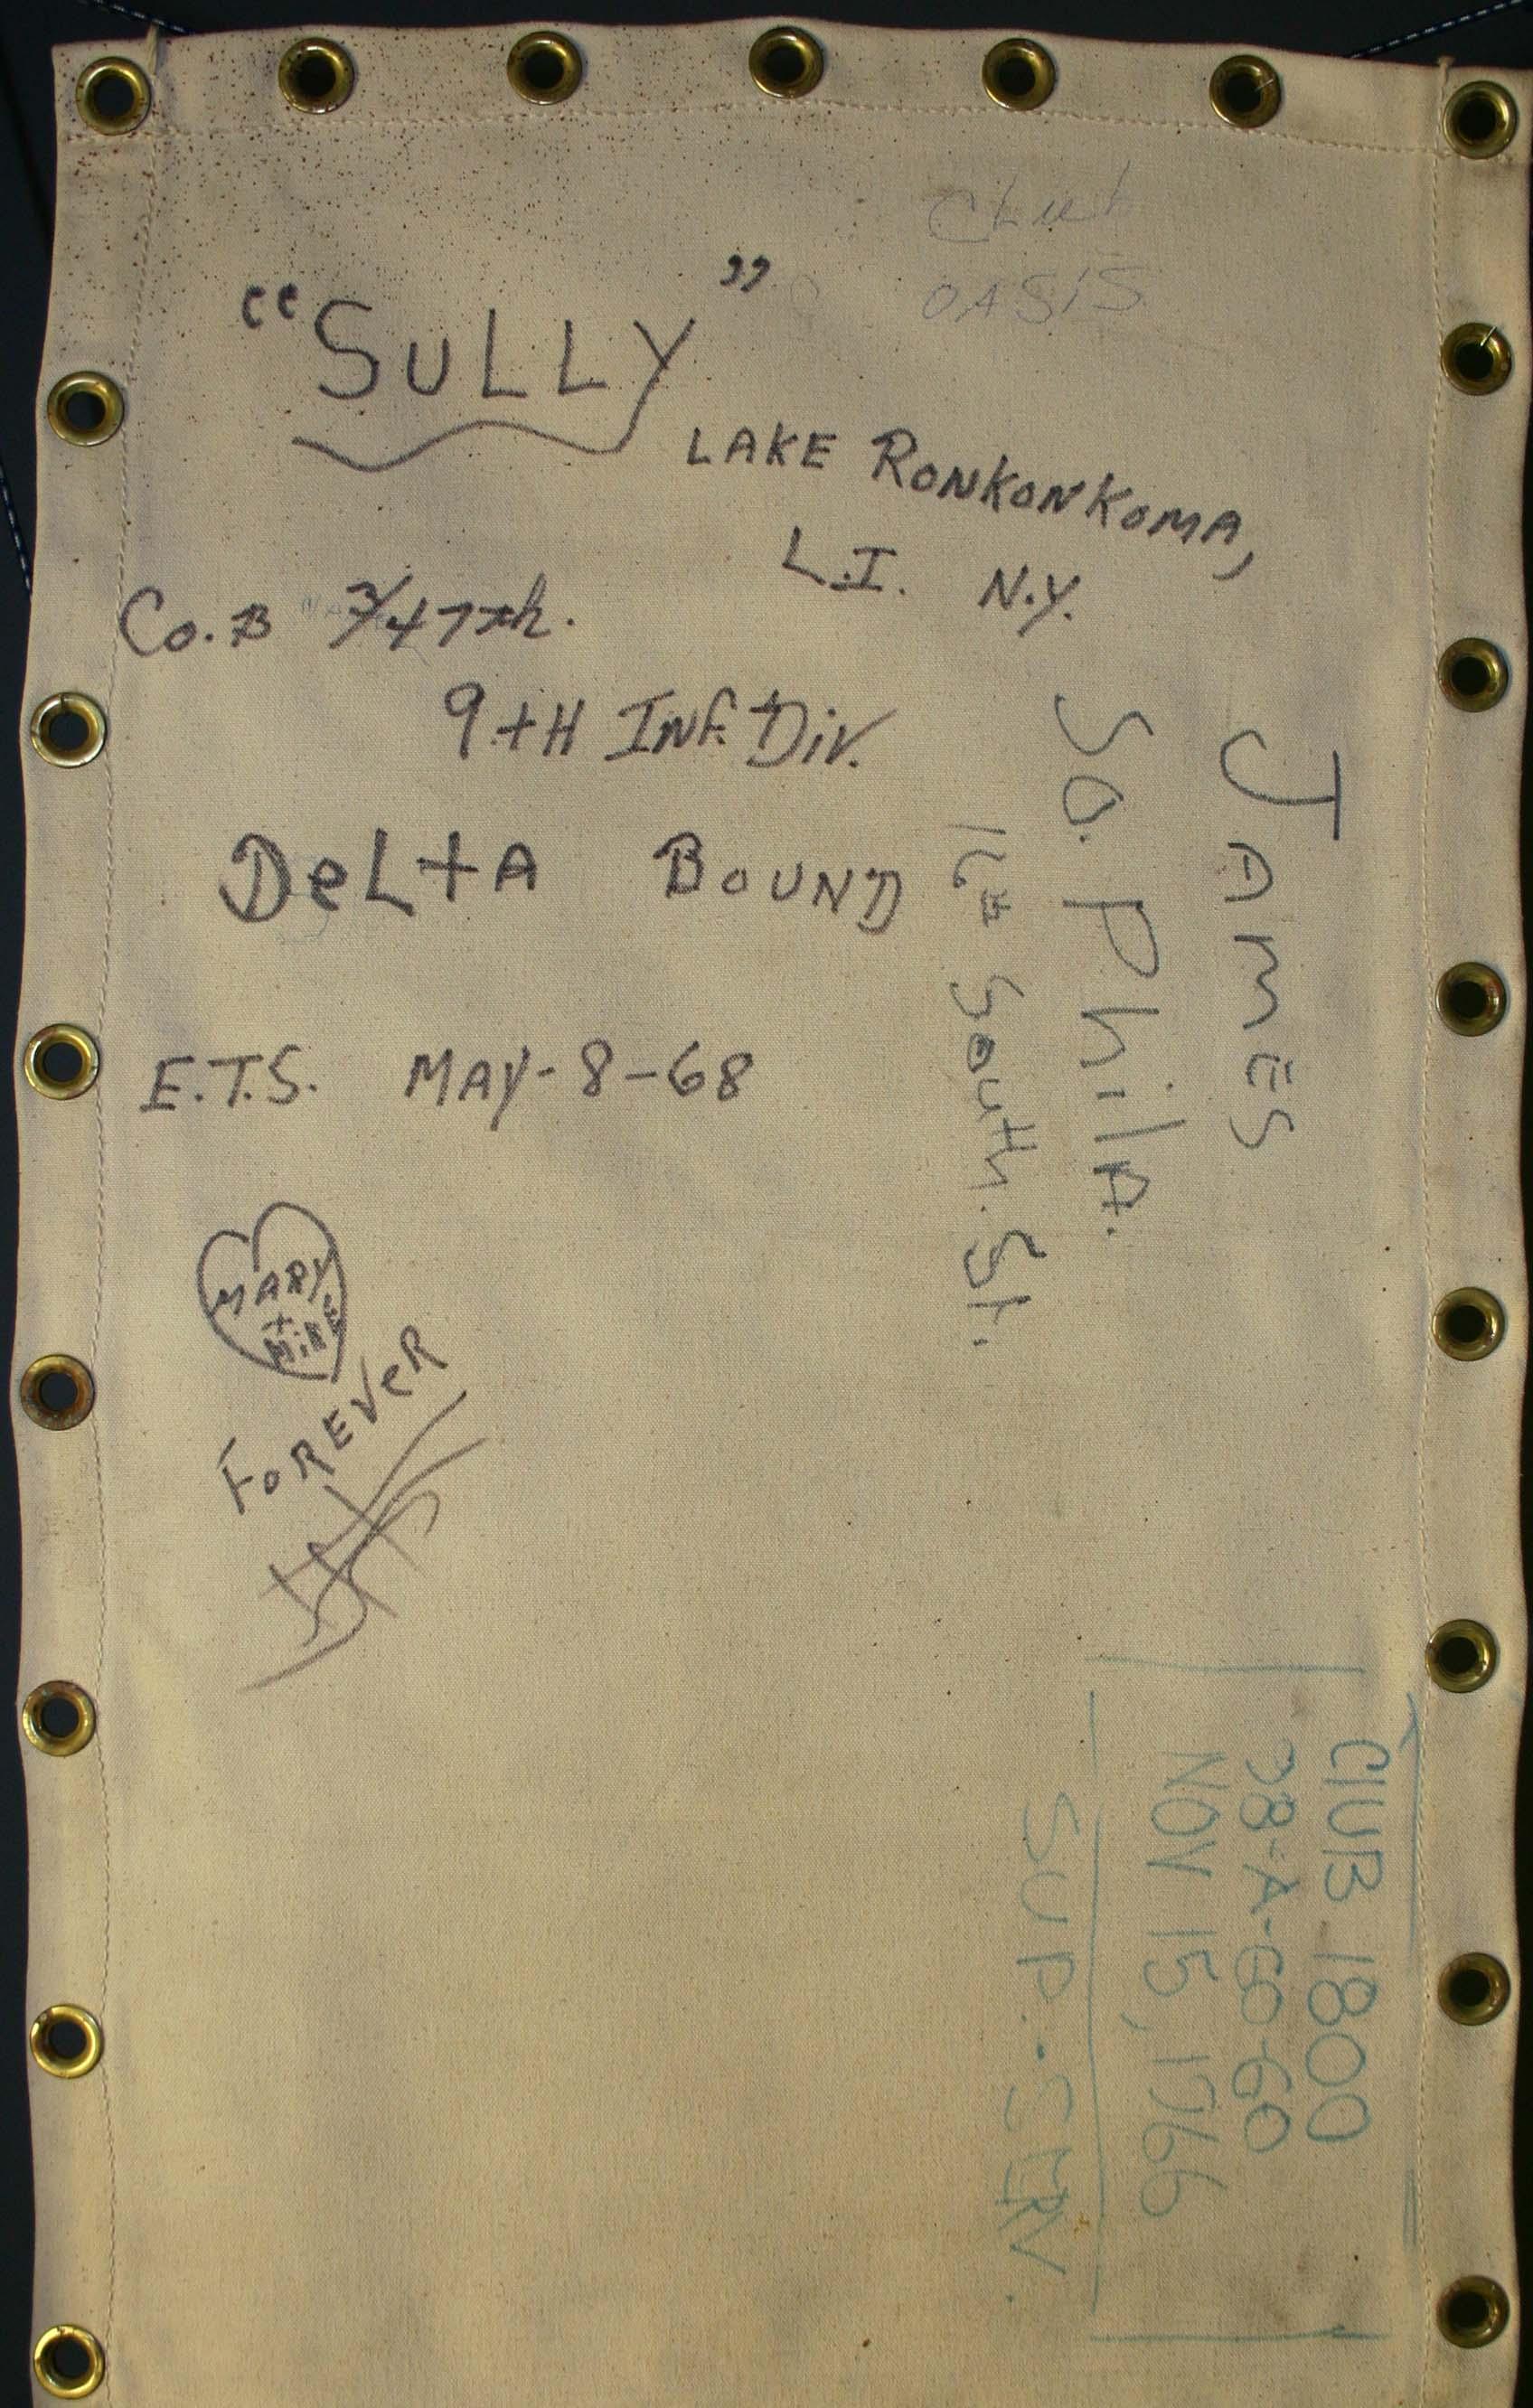 OASIS
"SULLY"
LAKE RONKONKOMA,
L.I. N.Y.
Co. B 3/47th.
9tH INF. Div.
DeLtA BOUND
E.T.S. MAY-8-68
MARY
+
MIKE
FOREVER
JAMES
So. PhilA.
16th South. St.
ClUB 1800
98-A-GO-GO
NOV 15, 1966
SUP. SERV.